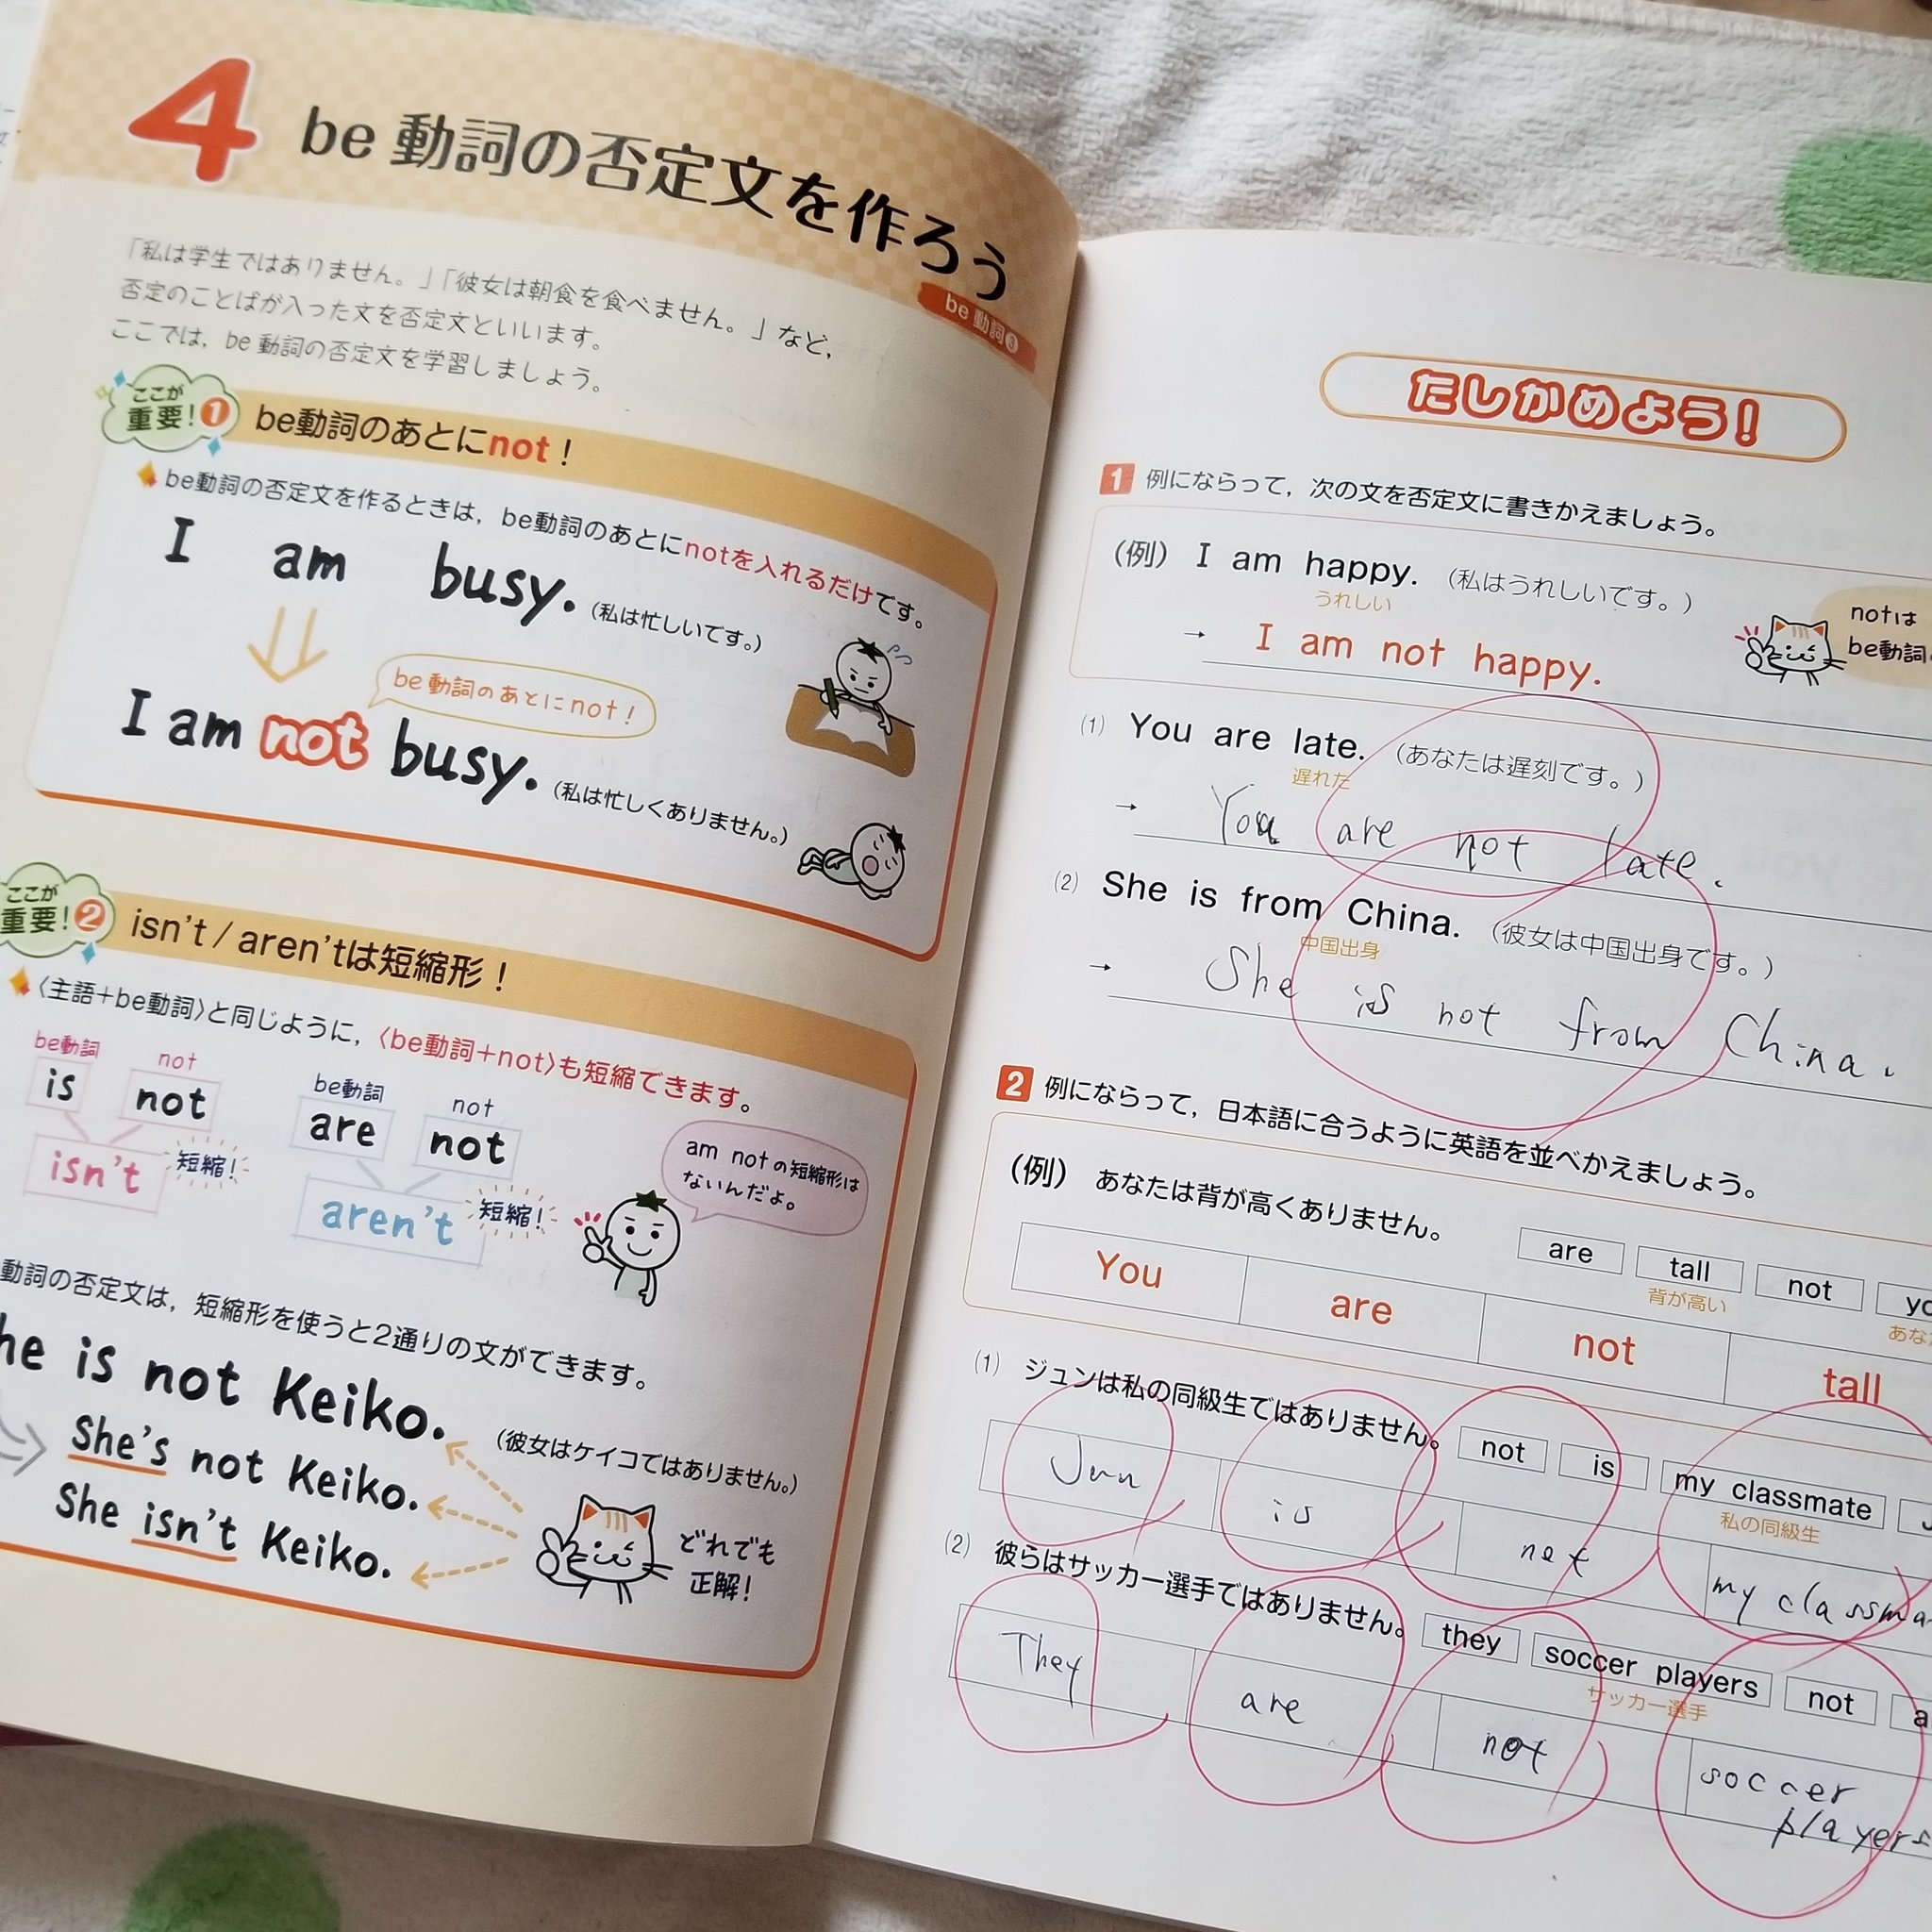 4 be 動詞の否定文を作ろう
be 動詞❸
「私は学生ではありません。」「彼女は朝食を食べません。」など,
否定のことばが入った文を否定文といいます。
ここでは, be 動詞の否定文を学習しましょう。
ここが
重要!1 be動詞のあとにnot!
be動詞の否定文を作るときは, be動詞のあとにnotを入れるだけです。
I am busy. (私は忙しいです。)
be 動詞のあとにnot!
I am not busy. (私は忙しくありません。)
ここが
重要!2 isn't / aren'tは短縮形!
〈主語+be動詞〉と同じように, 〈be動詞+not〉も短縮できます。
be動詞 not be動詞 not
is not are not
isn't 短縮! aren't 短縮!
am notの短縮形は
ないんだよ。
動詞の否定文は, 短縮形を使うと2通りの文ができます。
he is not Keiko. (彼女はケイコではありません。)
She's not Keiko.
She isn't Keiko.
どれでも
正解!
たしかめよう!
1 例にならって, 次の文を否定文に書きかえましょう。
(例) I am happy. (私はうれしいです。)
うれしい
→ I am not happy.
notは
be動詞
(1) You are late. (あなたは遅刻です。)
遅れた
→ You are not late.
(2) She is from China. (彼女は中国出身です。)
中国出身
→ She is not from China.
2 例にならって, 日本語に合うように英語を並べかえましょう。
(例) あなたは背が高くありません。 are tall not yo
背が高い あな
You are not tall
(1) ジュンは私の同級生ではありません。 not is my classmate
私の同級生
Jun is not my classma
(2) 彼らはサッカー選手ではありません。 they soccer players not a
サッカー選手
They are not soccer
players